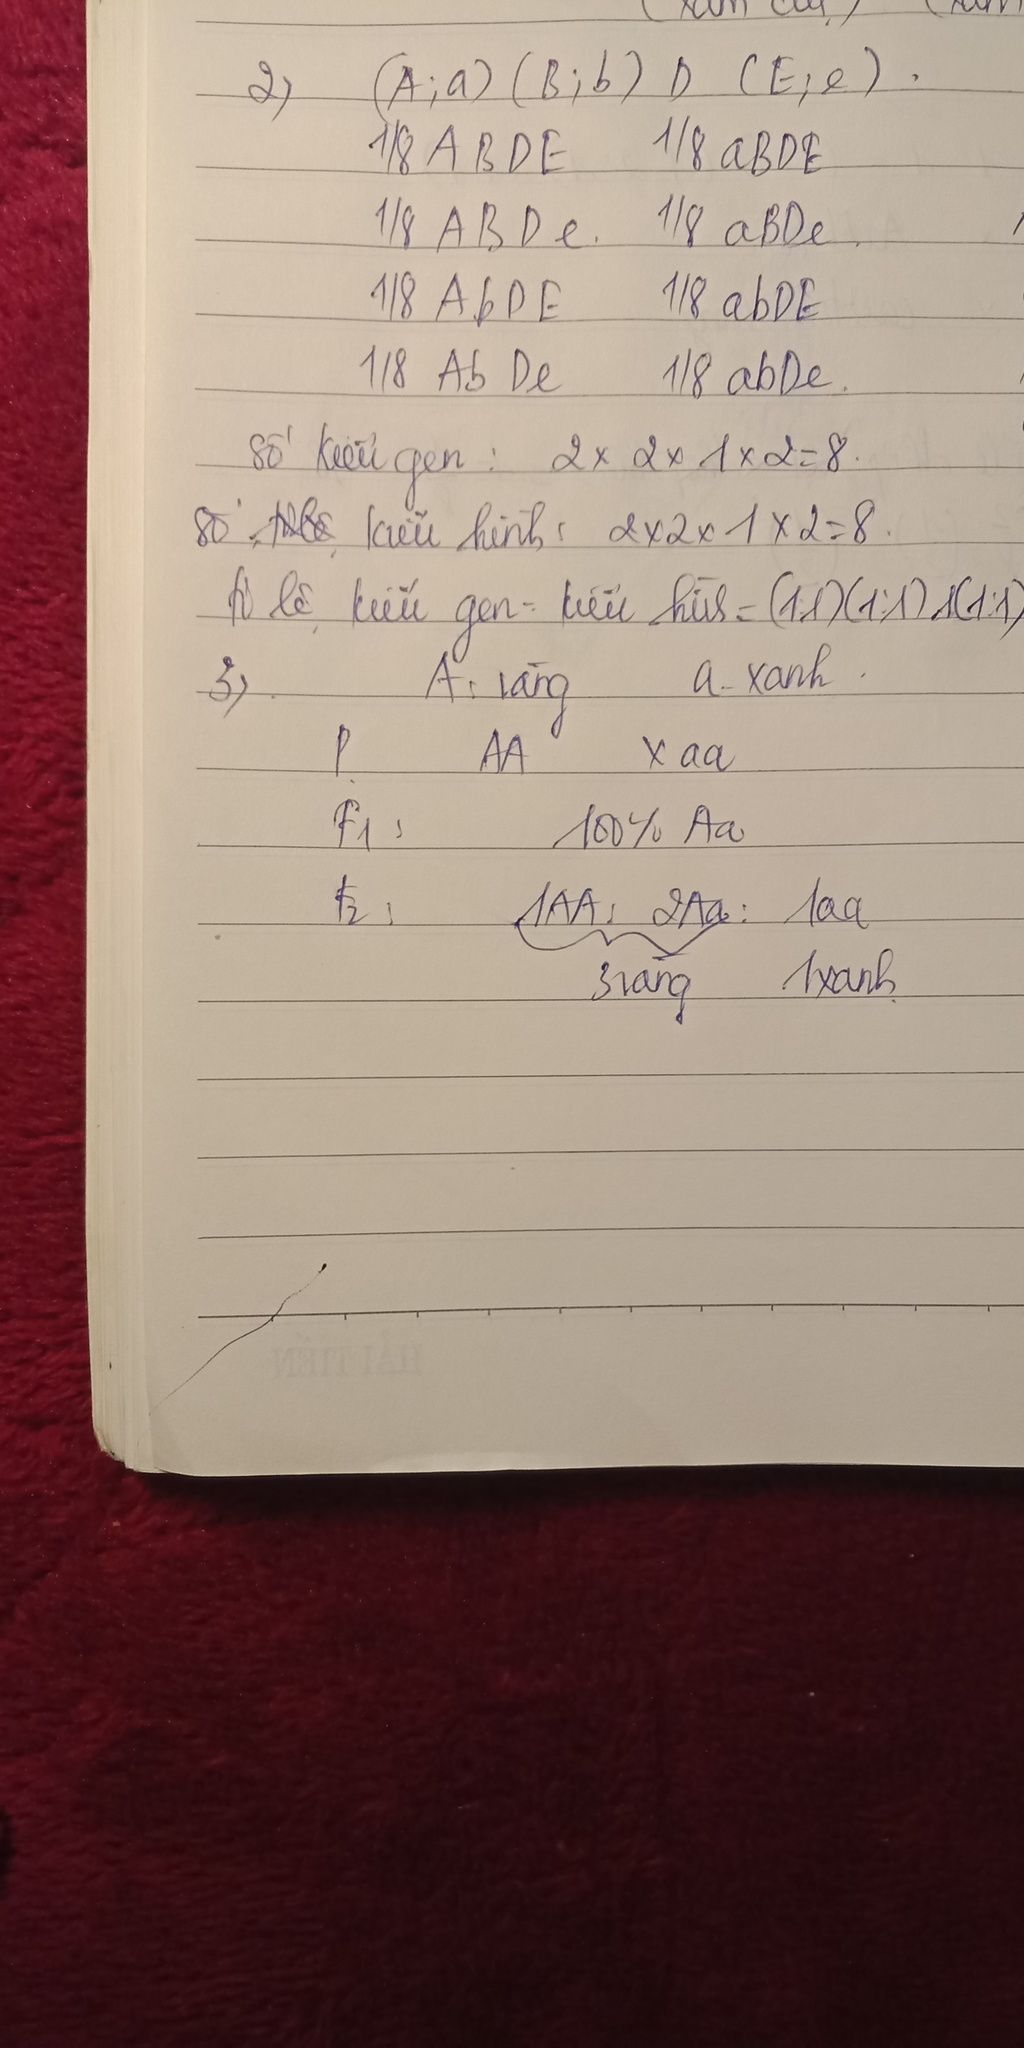 2) (A;a) (B;b) D (E;e).
1/8 ABDE 1/8 aBDE
1/8 ABDe. 1/8 aBDe.
1/8 AbDE 1/8 abDE
1/8 AbDe 1/8 abDe.
số kiểu gen: 2 x 2 x 1 x 2 = 8.
số kiểu hình: 2 x 2 x 1 x 2 = 8.
tỉ lệ kiểu gen = kiểu hình = (1:1)(1:1)1(1:1)
3) A: vàng a - xanh.
P. AA x aa
F1: 100% Aa
F2: 1AA: 2Aa: 1aa
3 vàng 1 xanh
HẢI TIẾN